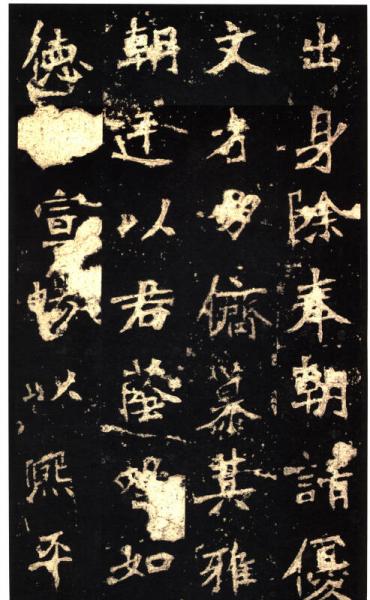 出身除奉朝請優
文才朋儕慕其雅
朝廷以君蔭望如
德宣暢以熙平